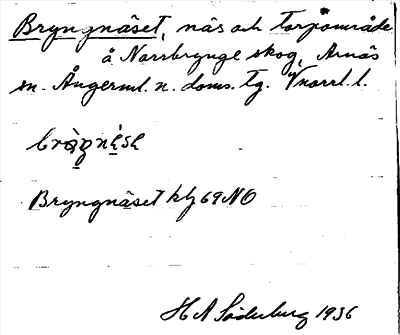 Bryngnäset, näs och torpområde
å Norrbrynge skog, Arnäs
sn. Ångerml. n. doms. tg. Vnorrl. l.
Bryngnäset hlz 69 NO
H A Söderberg 1936